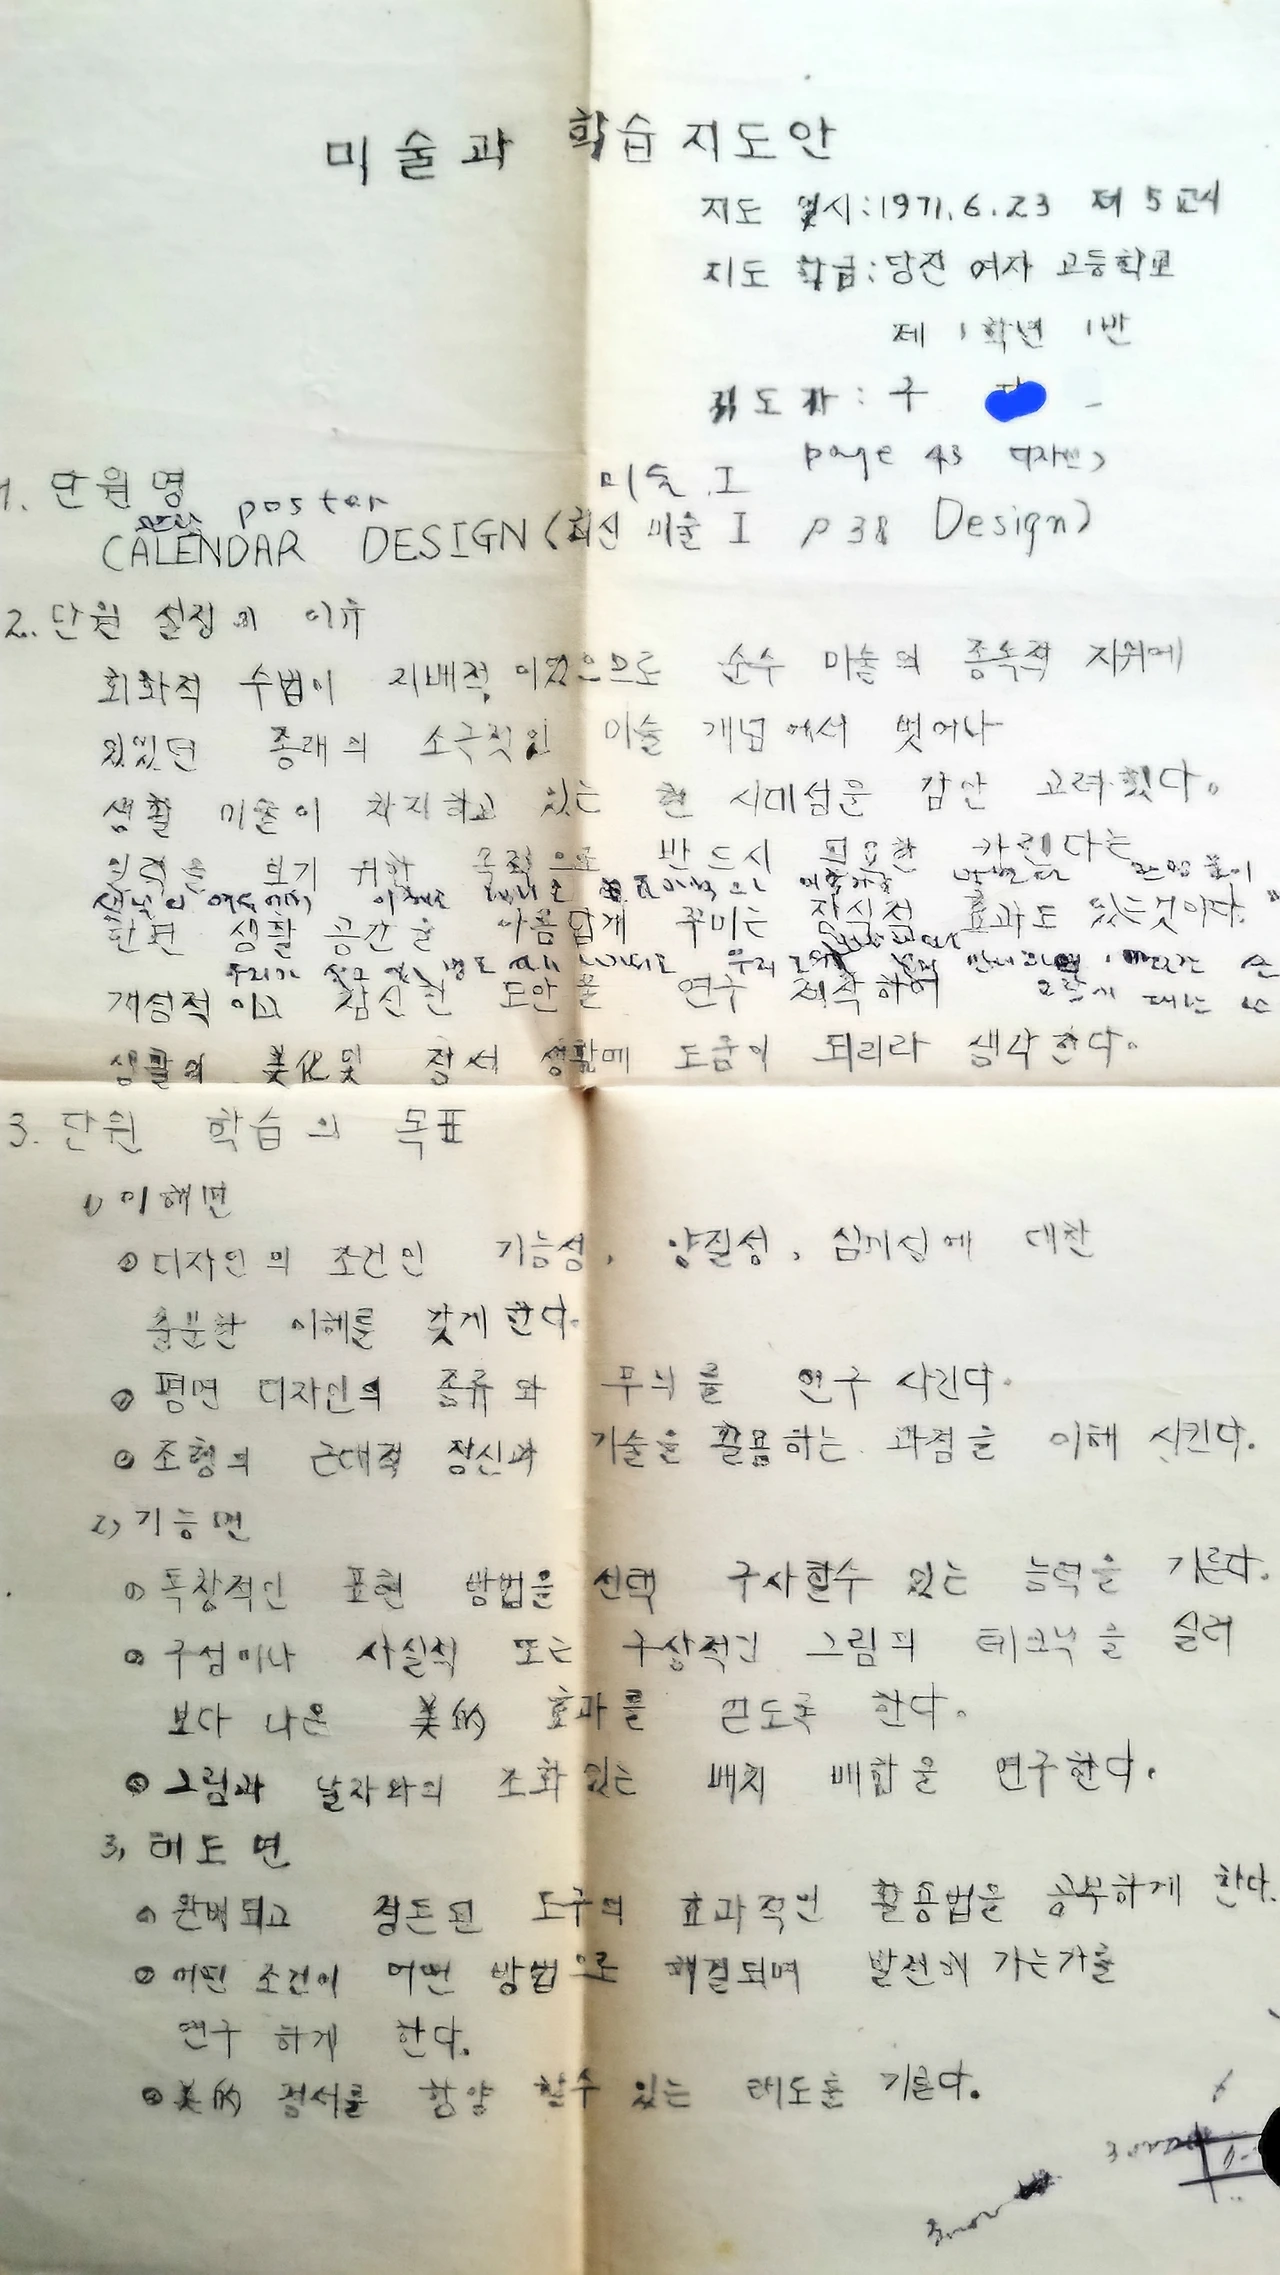 미술과 학습지도안
지도 일시:1971.6.23 제5교시
지도 학급:당진 여자 고등학교
제 1학년 1반
지도자: 구
미술 I page 43 디자인)
1. 단원명
poster
CALENDAR DESIGN (최신 미술 I p38 Design)
2. 단원 설정의 이유
회화적 수법이 지배적 이었으므로 순수 미술의 종속적 지위에
있었던 종래의 소극적인 미술 개념에서 벗어나
생활 미술이 차지하고 있는 현 시대성을 감안 고려했다.
일력을 보기 위한 목적으로 반드시 필요한 카렌다는
한편 생활 공간을 아름답게 꾸미는 장식적 효과도 있는것이다.
우리가
개성적이고 참신한 도안을 연구 제작하여
생활의 美化 및 정서 생활에 도움이 되리라 생각한다.
3. 단원 학습의 목표
1) 이해면
디자인의 조건인 기능성, 양질성, 심미성에 대한
충분한 이해를 갖게 한다.
평면 디자인의 종류와 무늬를 연구 시킨다.
조형의 근대적 정신과 기술을 활용하는 과정을 이해 시킨다.
2) 기능면
독창적인 표현 방법을 선택 구사할수 있는 능력을 기른다.
구성이나 사실적 또는 구상적인 그림의 테크닉을 살려
보다 나은 美的 효과를 얻도록 한다.
그림과 날자와의 조화 있는 배치 배합을 연구한다.
3) 태도면
완비되고 정돈된 도구의 효과적인 활용법을 공부하게 한다.
어떤 조건이 어떤 방법으로 해결되며 발전해 가는가를
연구 하게 한다.
美的 정서를 함양 할수 있는 태도를 기른다.